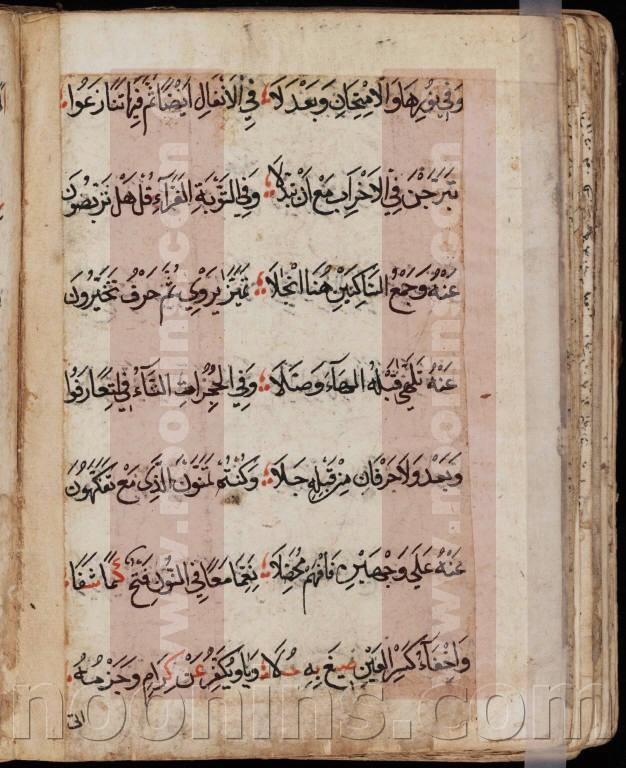 وَفِي نُورِهَا وَالِامْتِحَانِ وَبَعْدَ لَا فِي الْأَنْفَالِ أَيْضًا ثُمَّ فِيهَا تَنَازَعُوا
تَبَرَّجْنَ فِي الْأَحْزَابِ مَعْ أَنْ تَبَدَّلَا وَفِي التَّوْبَةِ الْغَرَّاءِ قُلْ هَلْ تَرَبَّصُونَ
عَنْهُ وَجَمْعُ السَّاكِنَيْنِ هُنَا انْجَلَا تَمَيَّزُ يَرْوِي ثُمَّ حَرْفُ تَخَيَّرُونَ
عَنْهُ تَلَهَّى قَبْلَهُ الْهَاءَ وَصَّلَا وَفِي الْحُجُرَاتِ التَّاءُ فِي لِتَعَارَفُوا
وَبَعْدَ وَلَا حَرْفَانِ مِنْ قَبْلِهِ جَلَا وَكُنْتُمْ تَمَنَّوْنَ الَّذِي مَعْ تَفَكَّهُونَ
عَنْهُ عَلَى وَجْهَيْنِ فَافْهَمْ مُحَصِّلَا نِعِمَّا مَعًا فِي النُّونِ فَتْحٌ كَمَا شَفَا
وَإِخْفَاءُ كَسْرِ الْعَيْنِ صِيغَ بِهِ حُلَا وَيَا وَيُكَفِّرْ عَنْ كِرَامٍ وَجَزْمُهُ
اتى
www.noonins.com
www.noonins.com
noonins.com